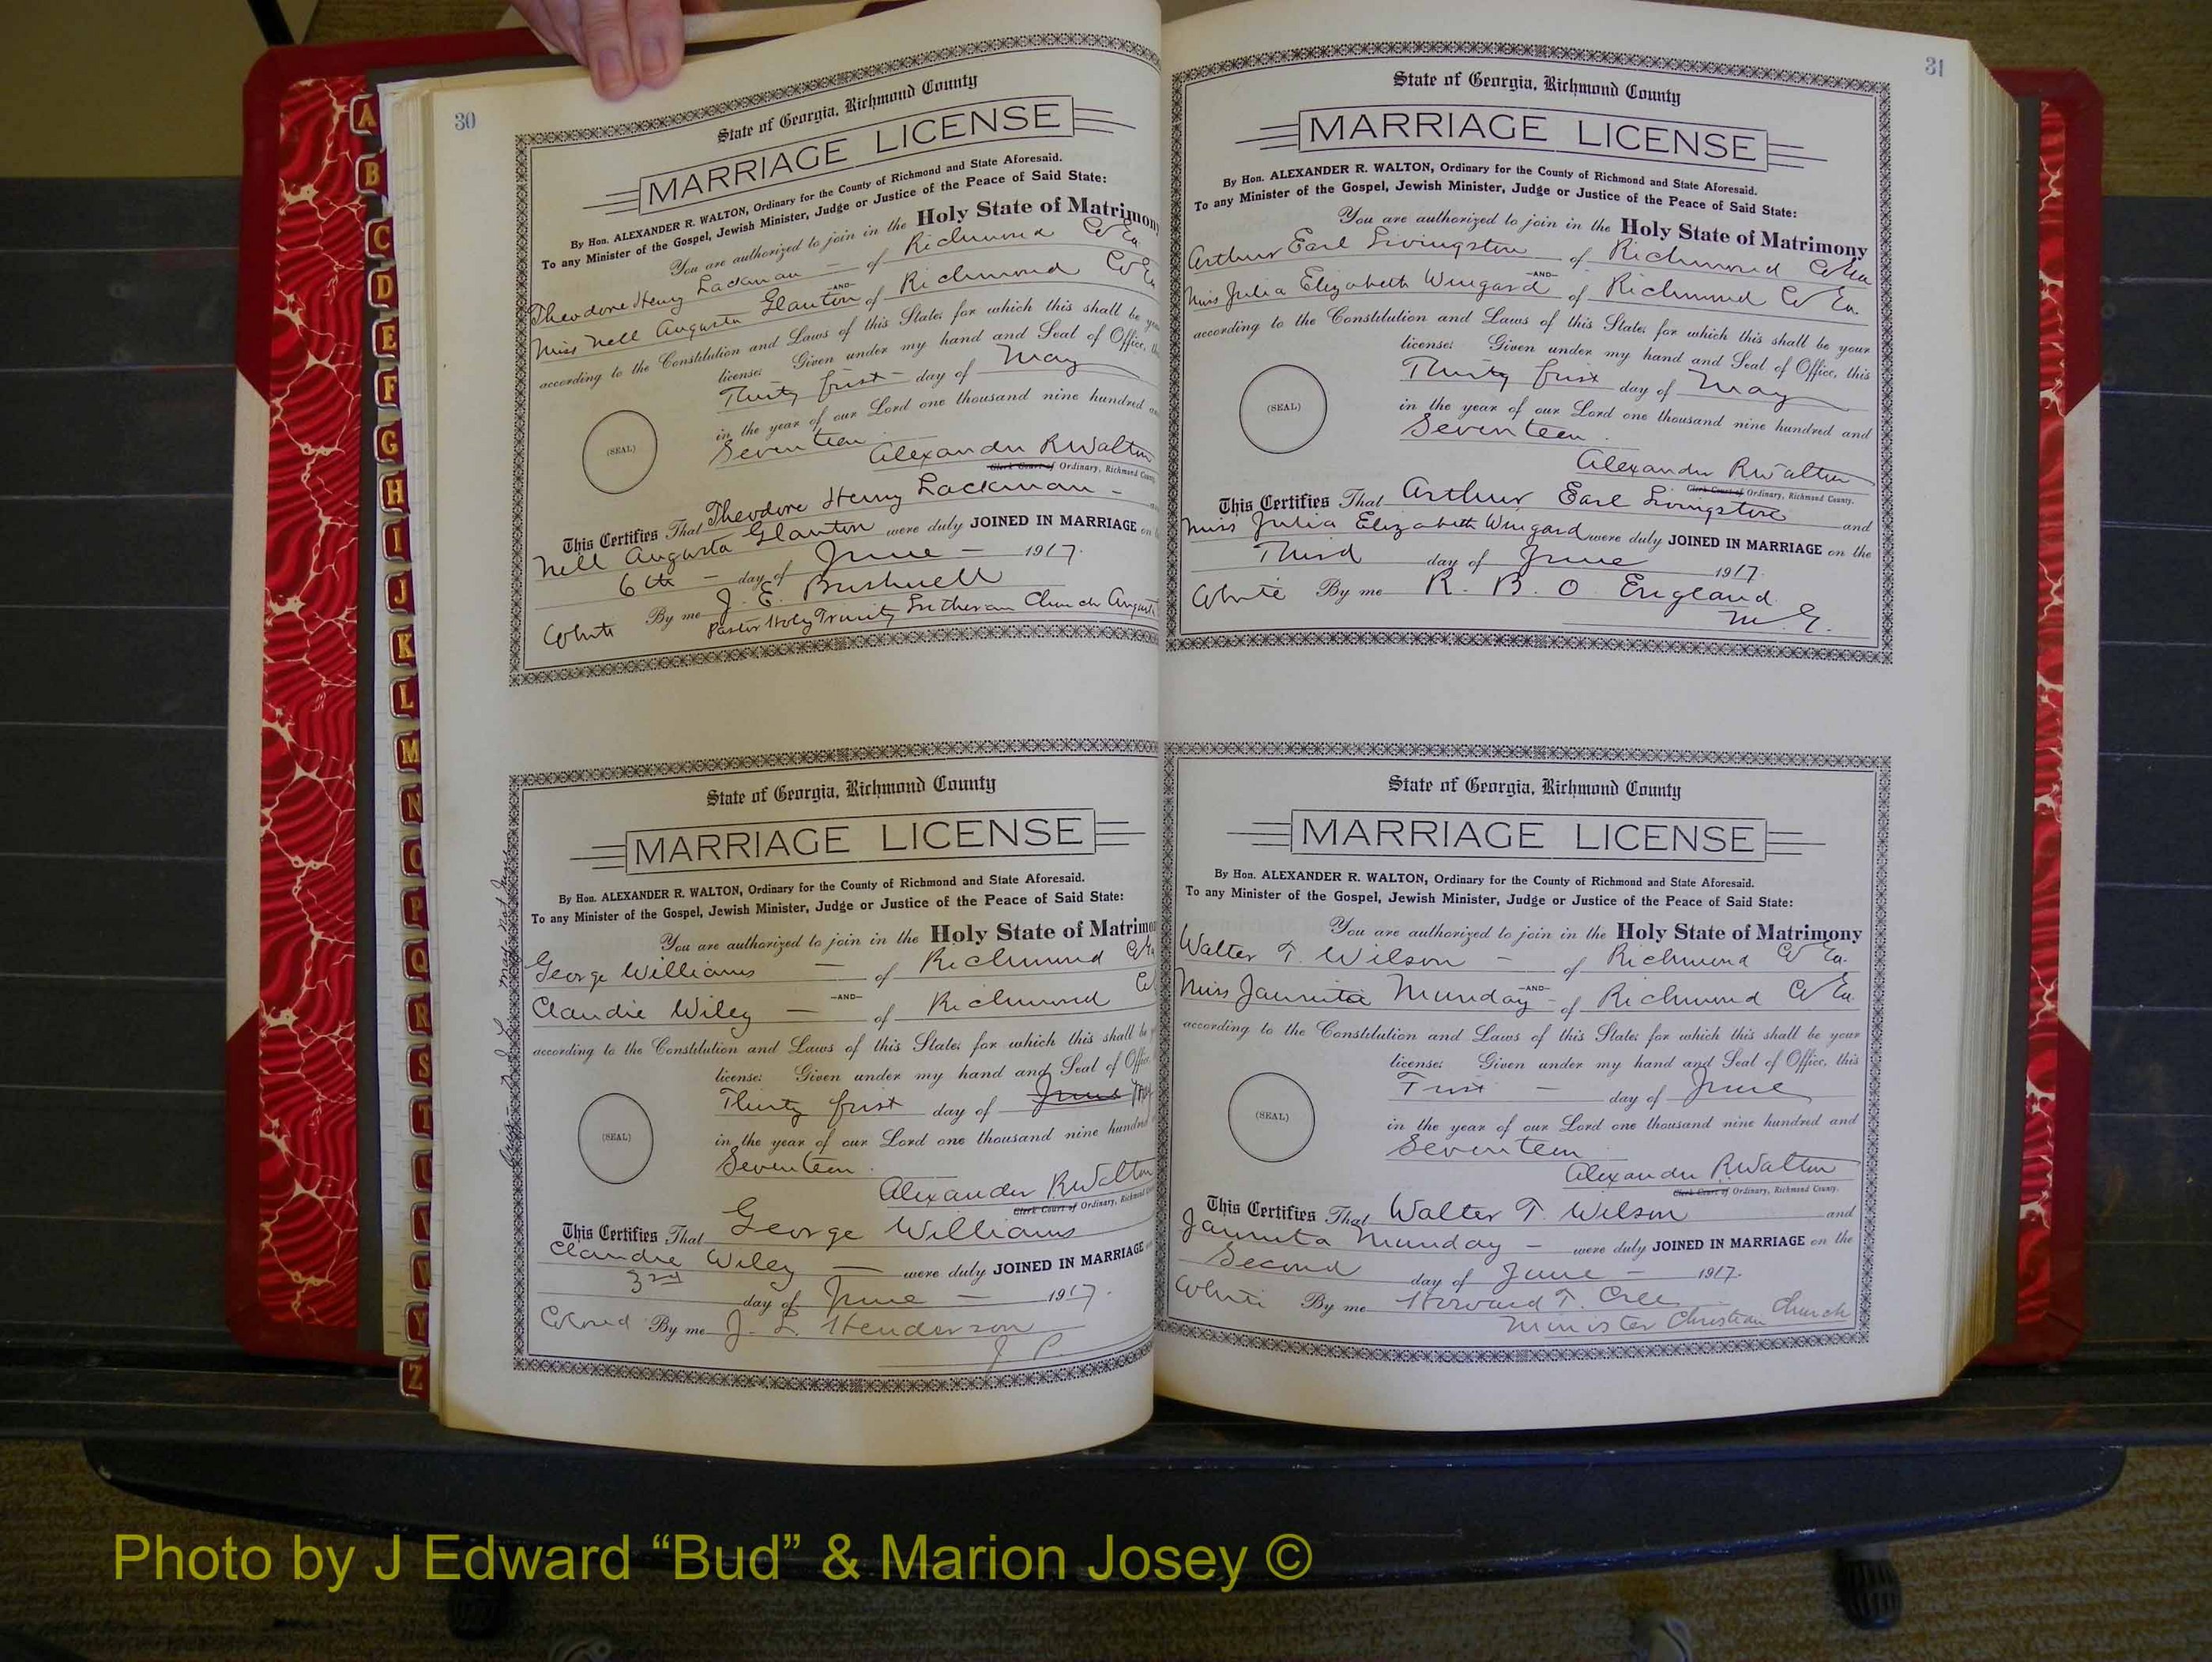 30
State of Georgia, Richmond County
MARRIAGE LICENSE
By Hon. ALEXANDER R. WALTON, Ordinary for the County of Richmond and State Aforesaid.
To any Minister of the Gospel, Jewish Minister, Judge or Justice of the Peace of Said State:
You are authorized to join in the Holy State of Matrimony
Theodore Henry Lackman — of Richmond Co Ga
—AND—
Miss Nell Augusta Glanton of Richmond Co Ga
according to the Constitution and Laws of this State, for which this shall be
license: Given under my hand and Seal of Office,
Thirty first — day of May
in the year of our Lord one thousand nine hundred
Seventeen
(SEAL)
Alexander R Walton
Clerk Court of Ordinary, Richmond
This Certifies That Theodore Henry Lackman —
Nell Augusta Glanton were duly JOINED IN MARRIAGE on
6th — day of June — 1917.
By me J. E. Bushnell
White Pastor Holy Trinity Lutheran Church
State of Georgia, Richmond County
MARRIAGE LICENSE
By Hon. ALEXANDER R. WALTON, Ordinary for the County of Richmond and State Aforesaid.
To any Minister of the Gospel, Jewish Minister, Judge or Justice of the Peace of Said State:
You are authorized to join in the Holy State of
George Williams — of Richmond
—AND—
Claudie Wiley — of Richmond
according to the Constitution and Laws of this State, for which this shall be
license: Given under my hand and Seal of
Thirty first day of June
in the year of our Lord one thousand nine
Seventeen
(SEAL)
Alexander R Walton
Clerk Court of Ordinary,
This Certifies That George Williams
Claudie Wiley — were duly JOINED IN MARRIAGE
3rd day of June — 1917.
Colored By me J. L. Henderson
J P
31
State of Georgia, Richmond County
MARRIAGE LICENSE
By Hon. ALEXANDER R. WALTON, Ordinary for the County of Richmond and State Aforesaid.
To any Minister of the Gospel, Jewish Minister, Judge or Justice of the Peace of Said State:
You are authorized to join in the Holy State of Matrimony
Arthur Earl Livingston of Richmond Co Ga
—AND—
Miss Julia Elizabeth Wingard of Richmond Co Ga.
according to the Constitution and Laws of this State, for which this shall be your
license: Given under my hand and Seal of Office, this
Thirty first day of May
in the year of our Lord one thousand nine hundred and
Seventeen.
(SEAL)
Alexander R Walton
Clerk Court of Ordinary, Richmond County.
This Certifies That Arthur Earl Livingston and
Miss Julia Elizabeth Wingard were duly JOINED IN MARRIAGE on the
Third day of June 1917.
White By me R. B. O England
State of Georgia, Richmond County
MARRIAGE LICENSE
By Hon. ALEXANDER R. WALTON, Ordinary for the County of Richmond and State Aforesaid.
To any Minister of the Gospel, Jewish Minister, Judge or Justice of the Peace of Said State:
You are authorized to join in the Holy State of Matrimony
Walter T. Wilson — of Richmond Co Ga.
—AND—
Miss Jaunita Munday — of Richmond Co Ga.
according to the Constitution and Laws of this State, for which this shall be your
license: Given under my hand and Seal of Office, this
First — day of June
in the year of our Lord one thousand nine hundred and
Seventeen
(SEAL)
Alexander R. Walton
Clerk Court of Ordinary, Richmond County.
This Certifies That Walter T. Wilson and
Jaunita Munday — were duly JOINED IN MARRIAGE on the
Second day of June — 1917.
White By me Howard T. Cree
Minister Christian Church
A
B
C
D
E
F
G
H
I
J
K
L
M
N
O
P
Q
R
S
T
U
V
W
Y
Z
Photo by J Edward “Bud” & Marion Josey ©